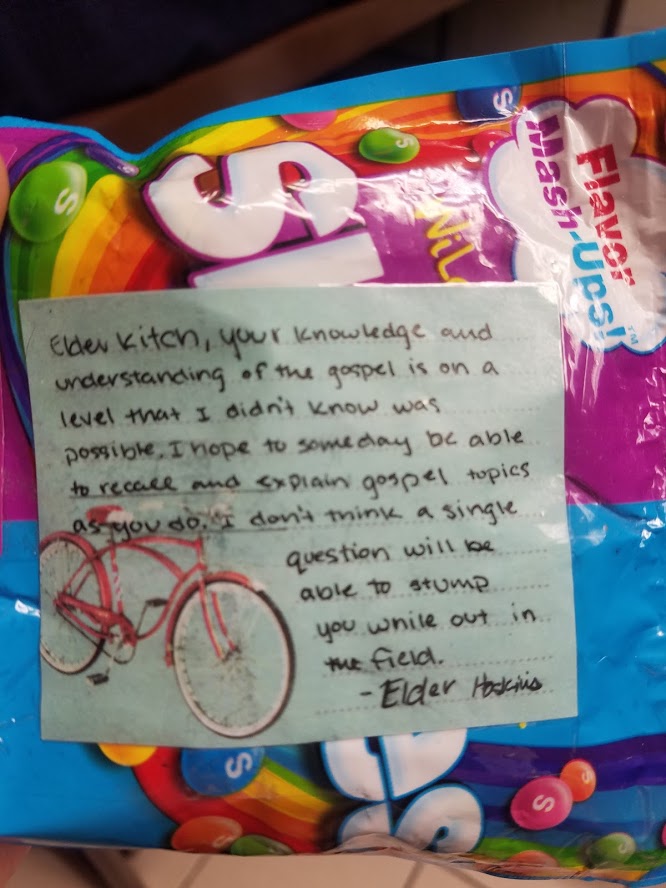 Flavor
Mash-Ups!™
Elder Kitch, your knowledge and
understanding of the gospel is on a
level that I didn't know was
possible. I hope to someday be able
to recall and explain gospel topics
as you do. I don't think a single
question will be
able to stump
you while out in
the field.
- Elder Hoskins